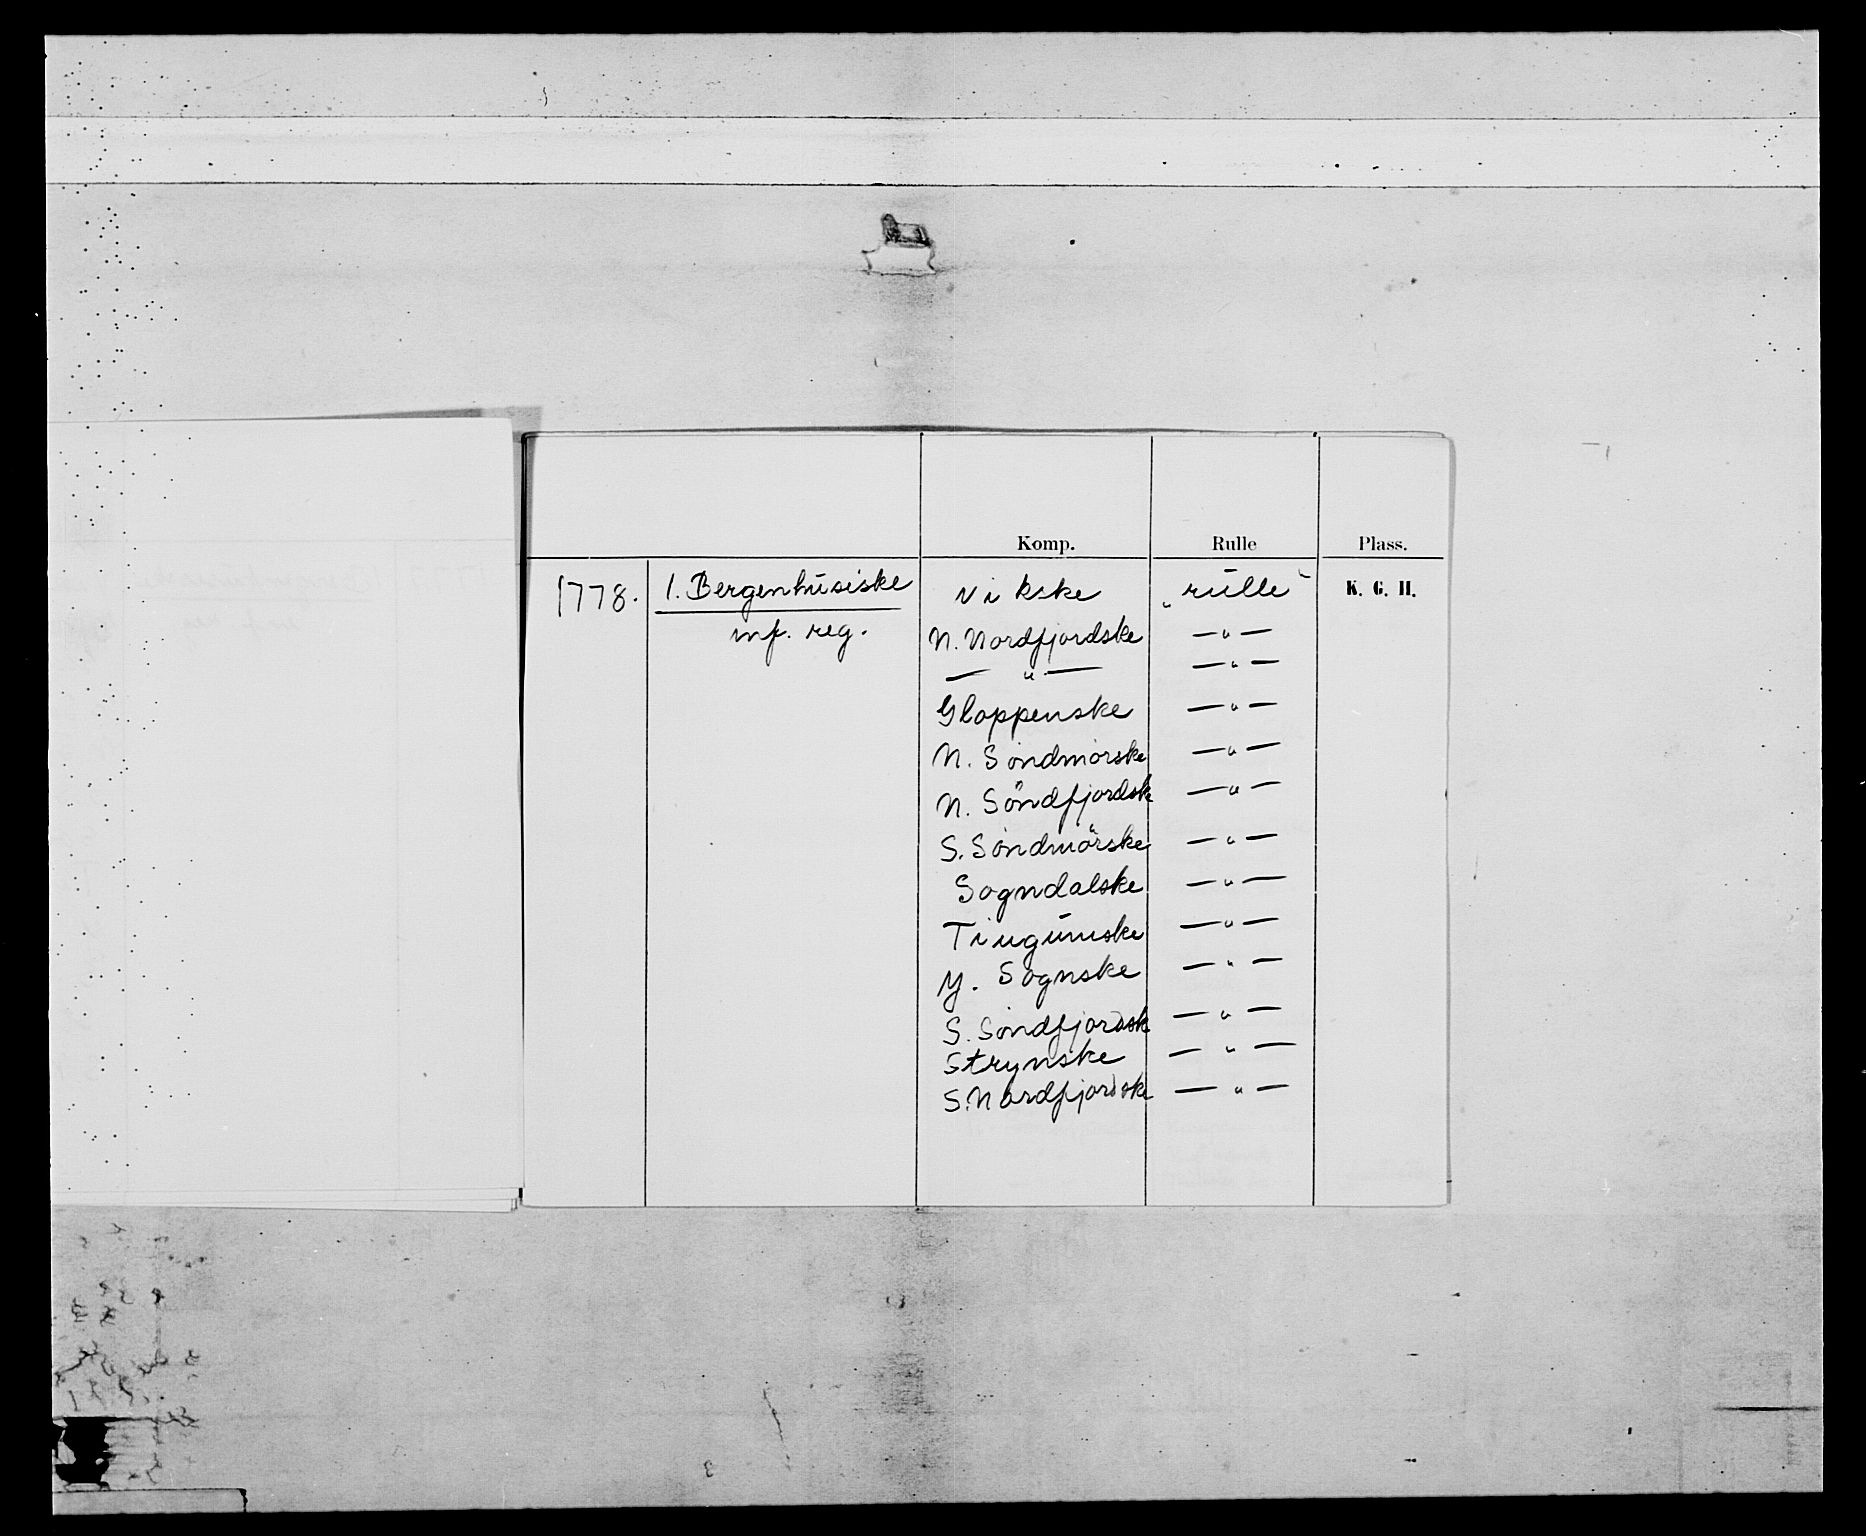 Komp. Rulle Plass.
1778. 1. Bergenhusiske Vikske „rulle“ K. G. H.
inf. reg. N. Nordfjordske — „ —
— „ — — „ —
Gloppenske — „ —
N. Söndmörske — „ —
N. Söndfjordsk — „ —
S. Söndmörske — „ —
Sogndalske — „ —
Tingumske — „ —
Y. Sognske — „ —
S. Söndfjordsk — „ —
Strynske — „ —
S. Nordfjordske — „ —